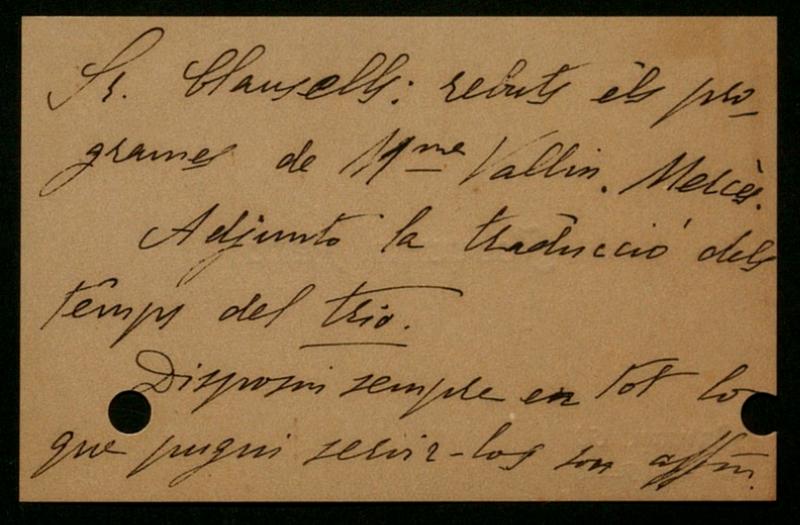 Sr. Clausells: rebuts els pro-
grames de Mme Vallin. Mercès.
Adjunto la traducció dels
temps del trio.
Disposin sempre en tot lo
que pugui servir-los son affm.